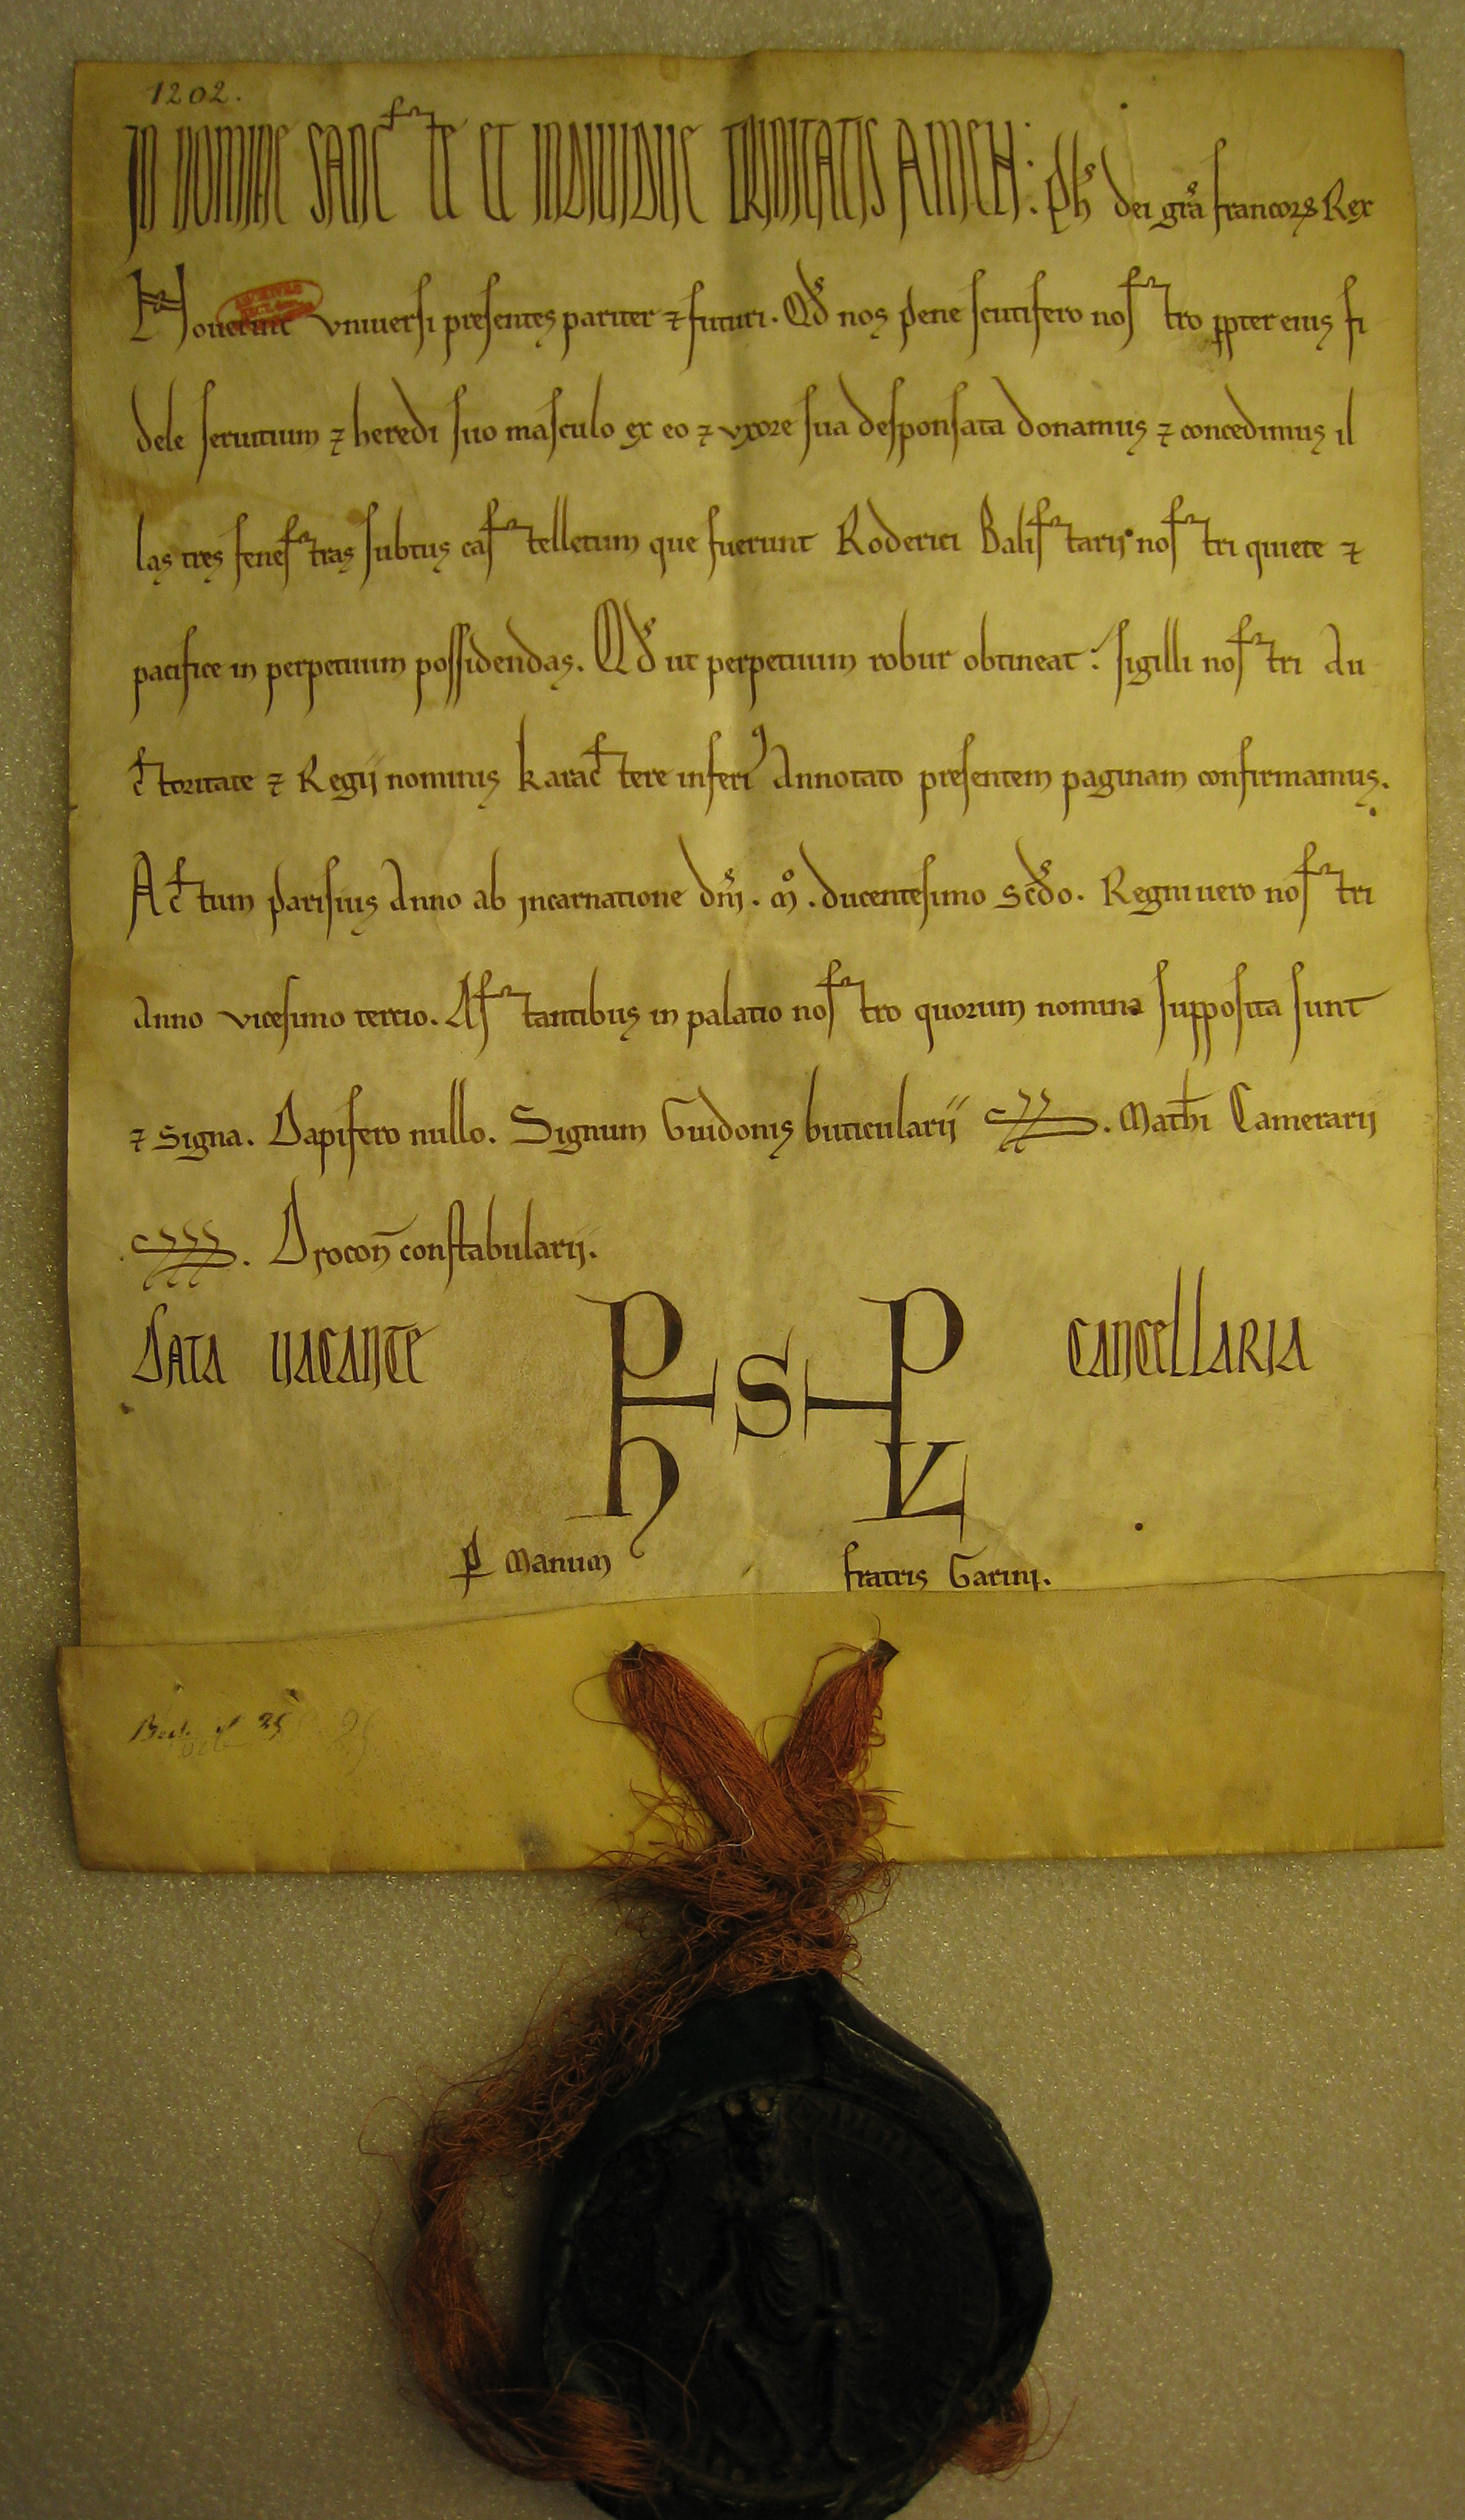 1202.
IN NOMINE SANCTE ET INDIVIDUE TRINITATIS AMEN: Ph's dei gra francorꝝ Rex
Noverint universi presentes pariter ⁊ futuri. Qd nos pene scutifero nostro ꝓpter eius fi
dele servitium ⁊ heredi suo masculo ex eo ⁊ uxore sua desponsata donamus ⁊ concedimus il
las tres fenestras subtus castelletum que fuerunt Roderici Balistarij nostri quiete ⁊
pacifice in perpetuum possidendas. Qd ut perpetuum robur obtineat: sigilli nostri au
ctoritate ⁊ Regij nominis karactere inferiꝰ annotato presentem paginam confirmamus.
Actum parisius Anno ab incarnatione dnj. mº. ducentesimo scdo. Regni vero nostri
anno vicesimo tercio. Astantibus in palatio nostro quorum nomina supposita sunt
⁊ signa. Dapifero nullo. Signum Guidonis buticularij. Mathi Camerarij
. Drocon constabularij.
DATA VACANTE PHSPL CANCELLARIA
ꝑ manum fratris Garinj.
25